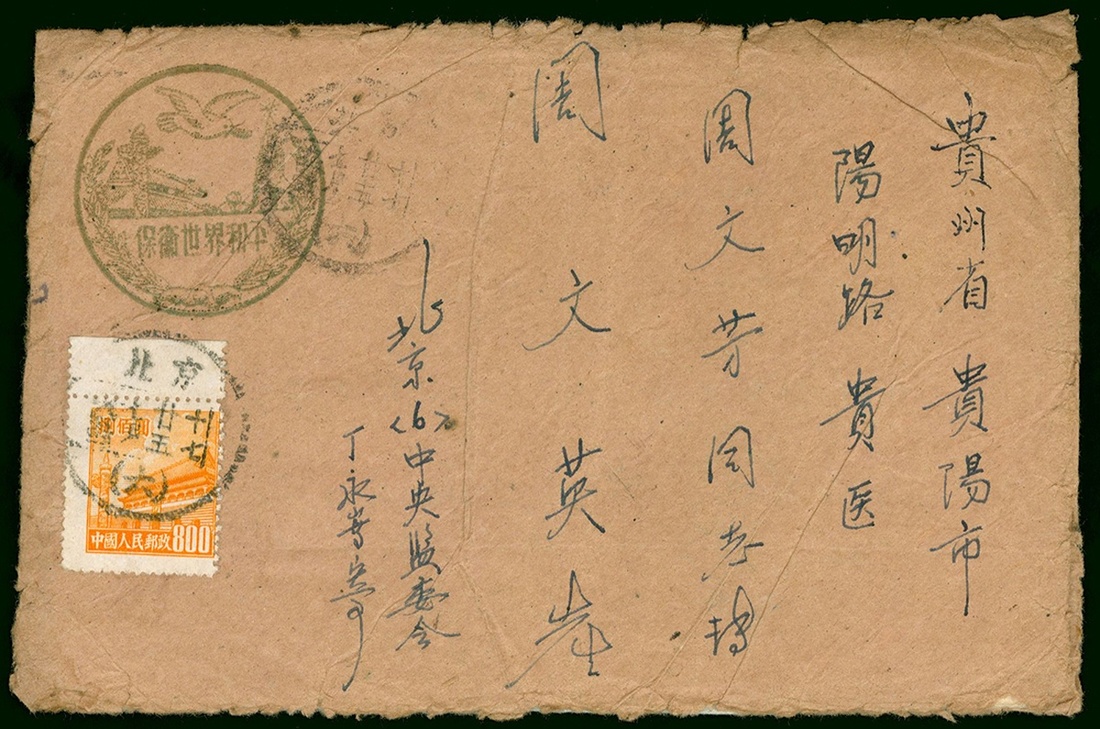 貴州省貴陽市
陽明路貴医
周文芳同志轉
周文英
北京<6>中央监委会
保衛世界和平
北京
廿五
十七
(六)
捌佰圓
中國人民郵政 800